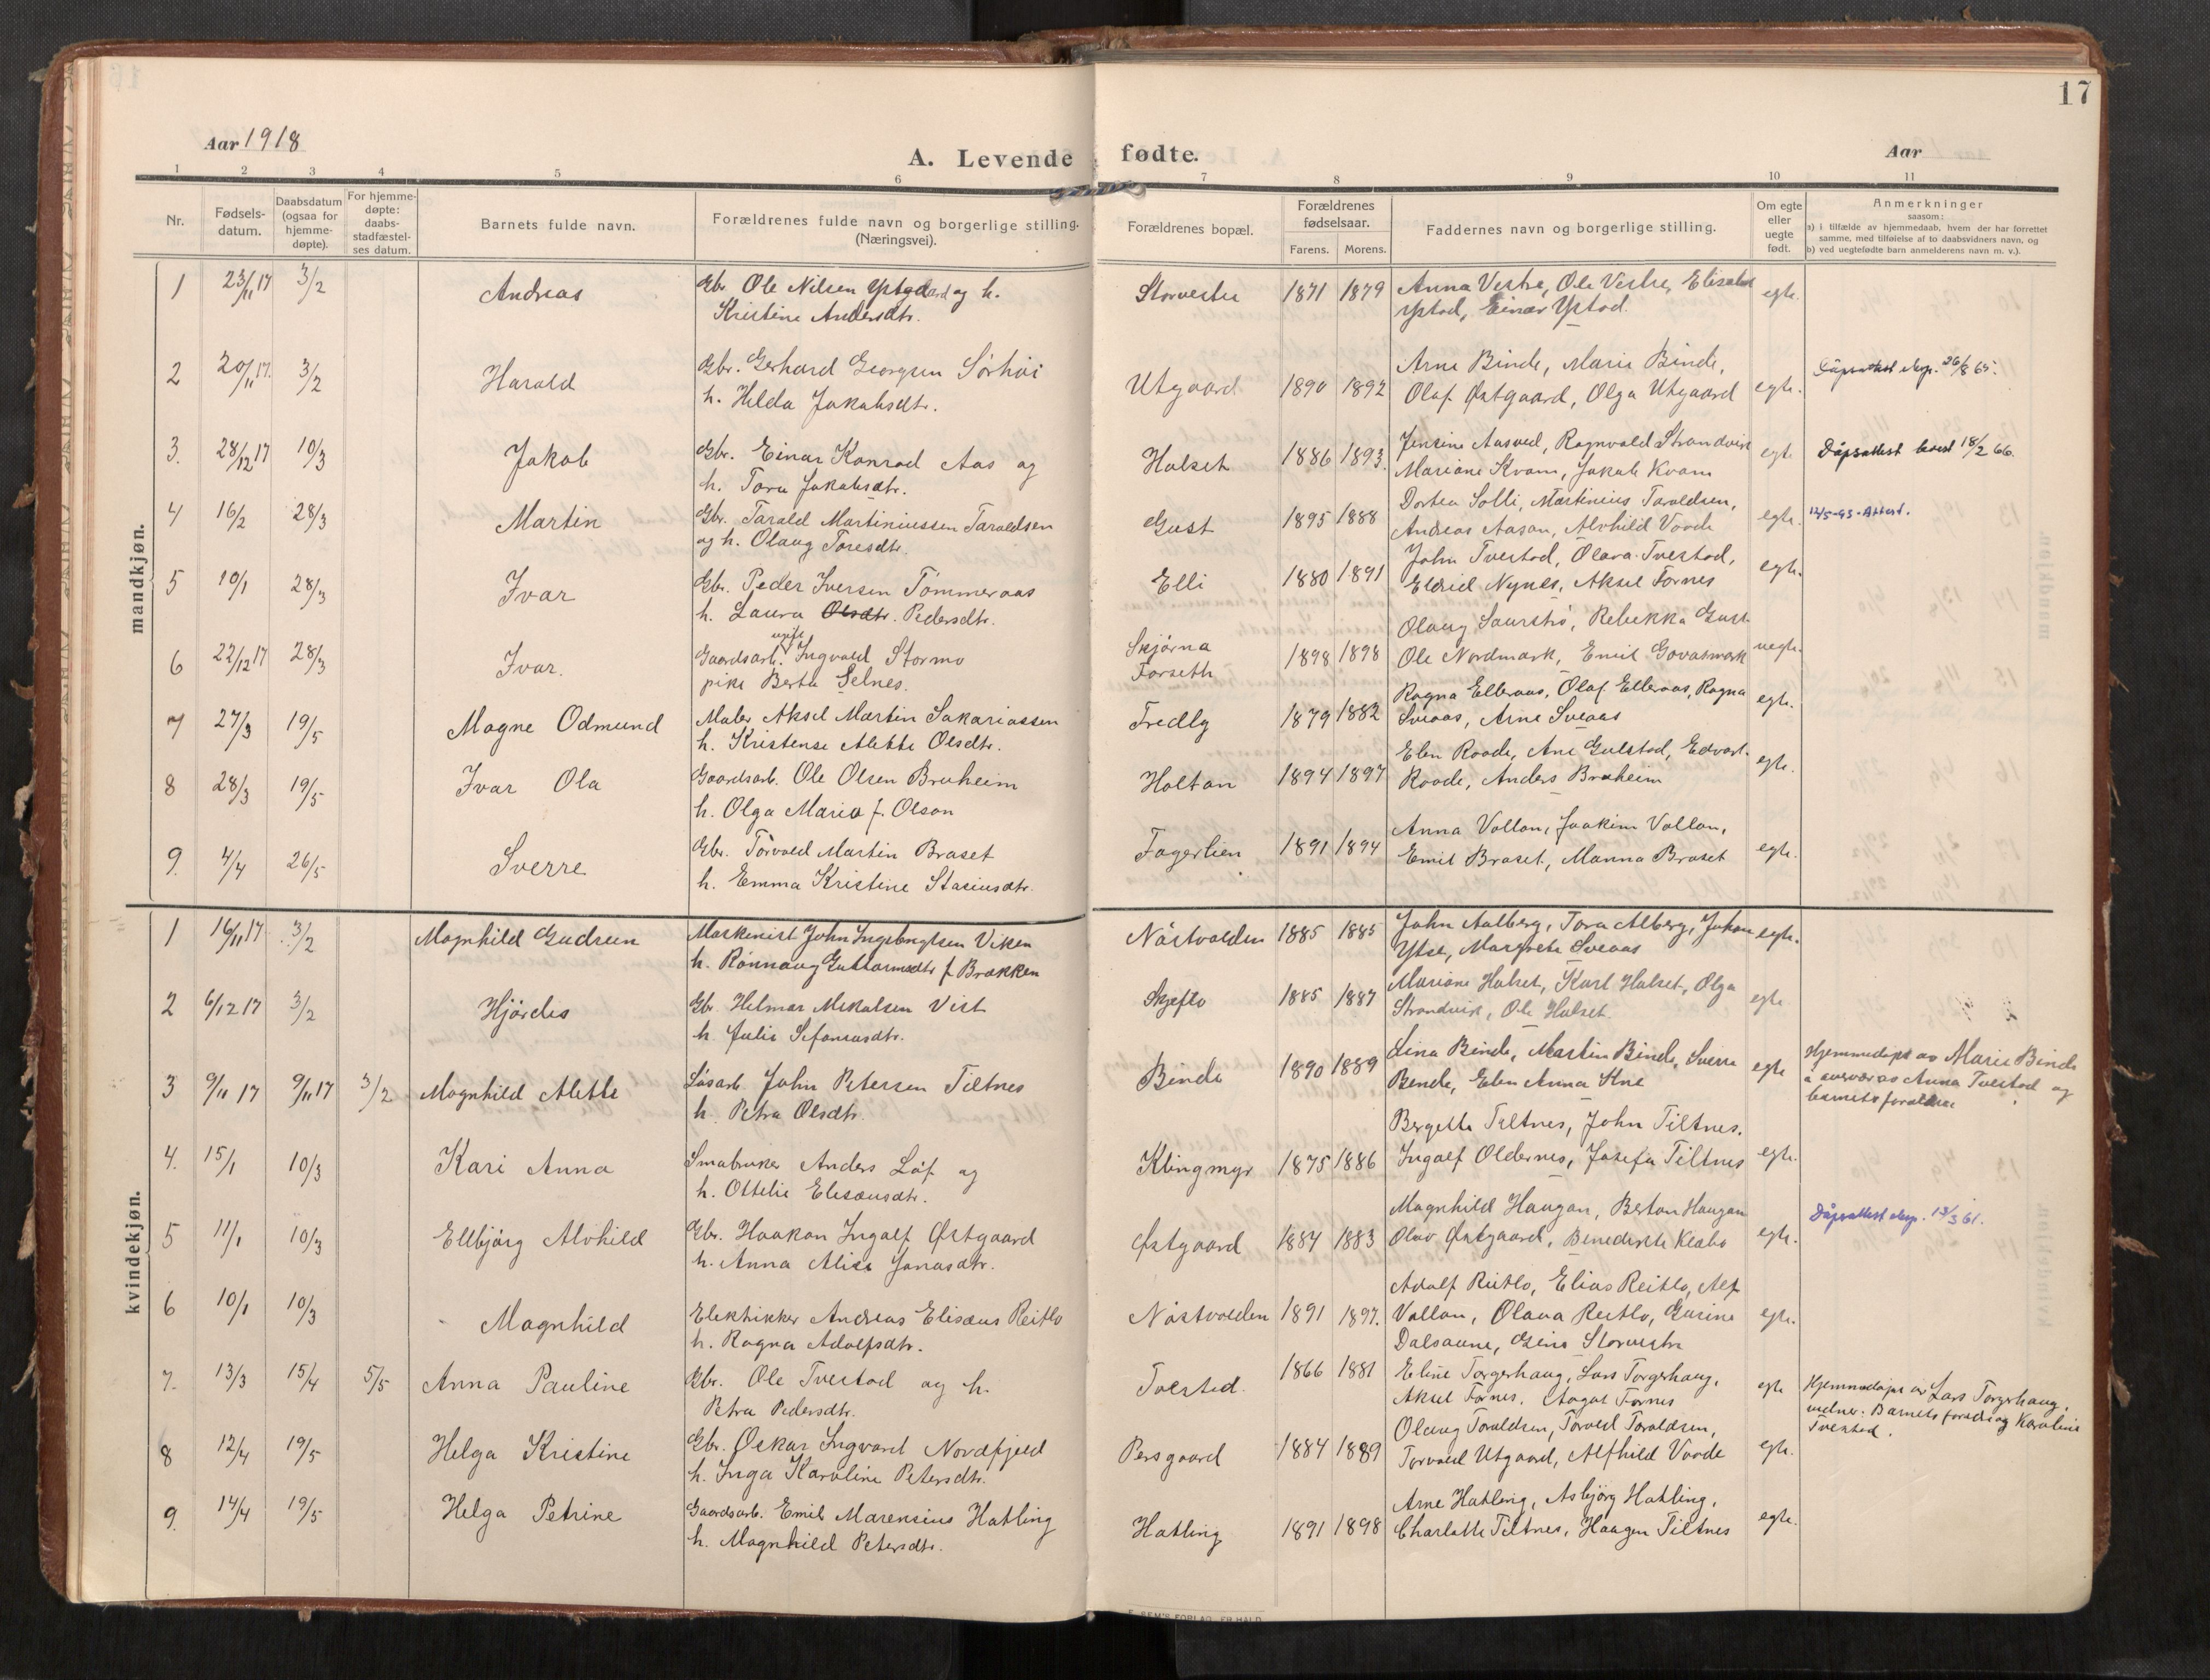 17
Aar 1918
A. Levende fødte.
Aar
1 2 3 4 5 6 7 8 9 10 11
Nr.
Fødselsdatum.
Daabsdatum (ogsaa for hjemmedøpte).
For hjemmedøpte: daabsstadfæstelses datum.
Barnets fulde navn.
Forældrenes fulde navn og borgerlige stilling. (Næringsvei).
Forældrenes bopæl.
Forældrenes fødselsaar.
Farens. Morens.
Faddernes navn og borgerlige stilling.
Om egte eller uegte født.
Anmerkninger
saasom:
a) i tilfælde av hjemmedaab, hvem der har forrettet samme, med tilføielse af to daabsvidners navn, og
b) ved uegtefødte barn anmelderens navn m. v.).
mandkjøn.
1 23/11 17 3/2 Andreas Gbr. Ole Nilsen Ystgaard og h. Storvestre 1871 1879 Anna Vestre, Ole Vestre, Elisabet egte.
Kristine Andersdtr. Ystad, Einar Ystad.
2 20/11 17. 3/2 Harald Gbr. Gerhard Georgsen Sørhøi Utgaard 1890 1892 Arne Binde, Marie Binde, egte. Dåpsattest eksp. 26/8 65.
h. Hilda Jakobsdtr. Olaf Østgaard, Olga Utgaard
3. 28/12 17 10/3 Jakob Gbr. Einar Konrad Aas og Halset 1886 1893. Jensine Aasved, Ragnvald Strandvik egte Dåpsattest 18/2 66.
h. Tora Jakobsdtr. Mariane Kvam, Jakob Kvam
4 16/2 28/3 Martin Gbr. Tarald Martiniussen Taraldsen Gust 1895 1888 Dortea Solli, Martinius Taraldsen, egte. 12/5-43-Attest.
og h. Olaug Toresdtr. Andreas Aasan, Alvhild Vorde
5 10/1 28/3 Ivar Gbr. Peder Iversen Tømmeraas Elli 1880 1891 John Tvestad, Olava Tvestad, egte.
h. Laura Olsdtr. Pedersdtr. Eldrid Nynes, Aksel Fornes
6 22/12 17 28/3 Ivar. Gaardsarb. ugift Ingvald Stormo Skjørna 1898 1898 Olaug Saurstrø, Rebekka Gust uegte.
pike Berta Selnes. Forseth Ole Nordmark, Emil Govasmark
7 27/3 19/5 Magne Odmund Maler Aksel Martin Sakariassen Fredly 1879 1882 Ragna Elleraas, Olaf Elleraas, Ragna egte.
h. Kristense Alette Olsdtr. Sveaas, Arne Sveaas
8 28/3 19/5 Ivar Ola Gaardsarb. Ole Olsen Bruheim Holtan 1894 1897 Elen Roode, Ane Gulstad, Edvart egte.
h. Olga Maria f. Olson Roode, Anders Bruheim
9. 4/4 26/5 Sverre Gbr. Torvald Martin Braset Fagerlien 1891 1894 Anna Vollan, Joakim Vollan, egte.
h. Emma Kristine Stasiusdtr. Emil Braset, Manna Braset
kvindekjøn.
1 16/11 17 3/2 Magnhild Gudrun Maskinist John Ingebrigtsen Viken Nøstvolden 1885 1885 John Aalberg, Tora Alberg, Johan egte.
h. Rønnaug Guttormsdtr f. Brækken Ytse, Margrete Sveaas
2 6/12 17 3/2 Hjørdis Gb. Hilmar Mikalsen Vist Skjefto 1885 1887 Mariane Halset, Karl Halset, Olga egte
h. Julie Sefaniasdtr. Strandvik, Ole Halset.
3 9/11 17 9/11 17 3/2 Magnhild Alette Løsarb. John Petersen Tiltnes Binde 1890 1889 Lina Binde, Martin Binde, Sverre egte Hjemmedøpt av Marie Binde
h. Petra Olsdtr. Binde, Elen Anna Stne i overvær av Anna Tvestad og
barnets forældre
4. 15/1 10/3 Kari Anna Smabruker Anders Løf og Klingmyr 1875 1886 Bergitta Tiltnes, John Tiltnes. egte.
h. Ottilie Eliseusdtr. Ingolf Oldernes, Josefa Tiltnes
5 11/1 10/3 Ellbjørg Alvhild Gbr. Haakon Ingolf Østgaard Østgaard 1884 1883 Magnhild Haugan, Berton Haugan egte. Dåpsattest eksp. 13/3 61.
h. Anna Alise Jonasdtr. Olav Østgaard, Benedikte Klæbo
6 10/1 10/3 Magnhild Elektrikker Andreas Eliseus Reitlo Nøstvolden 1891 1897. Adolf Reitlo, Elias Reitlo, Alf egte.
h. Ragna Adolfsdtr. Vollan, Olava Reitlo, Gurine
Dalsaune, Gina Storvestre
7. 13/3 15/4 5/5 Anna Pauline Gbr. Ole Tvestad og h. Tvestad. 1866 1881 Eline Torgerhaug, Lars Torgerhaug, egte Hjemmedøpt av Lars Torgerhaug,
Petra Pedersdtr. Aksel Fornes, August Fornes vidner: Barnets forældre og Karoline
Tvestad.
8 12/4 19/5 Helga Kristine Gbr. Oskar Ingvard Nordfjeld Persgaard 1884 1889 Olaug Taraldsen, Torvald Taraldsen, egte.
h. Inga Karoline Petersdtr. Torvald Utgaard, Alfhild Vorde
9. 14/4 19/5 Helga Petrine Gaardsarb. Emil Marensius Hatling Hatling 1891 1898 Arne Hatling, Asbjørg Hatling, egte.
h. Magnhild Petersdtr. Charlotte Tiltnes, Haagen Tiltnes